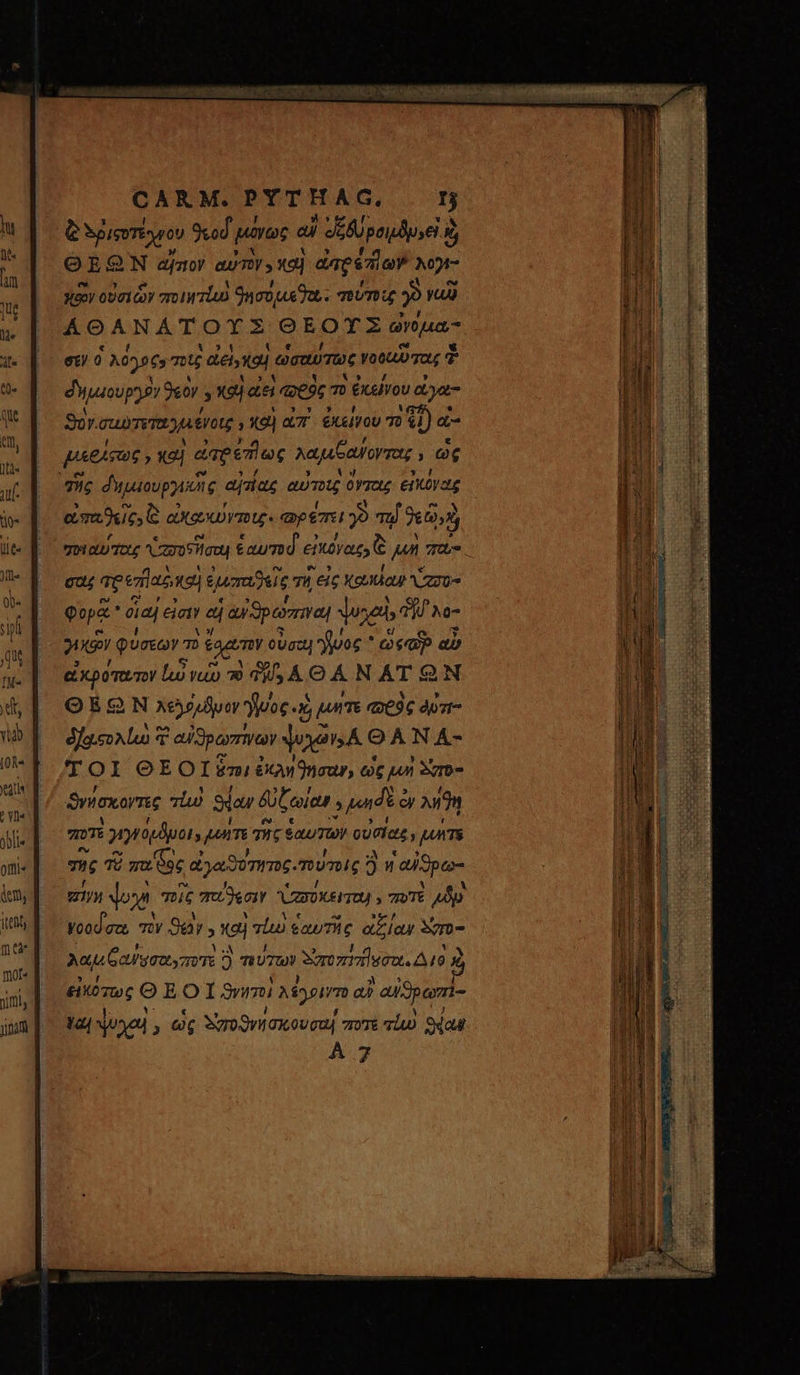 CARM. PYTHAG. 15
ὁ ἀριστοτέχνου θεοῦ μόνως ἂν ἐξευροιμθμεν ἢ
ΘΕΩΝ αἴτιον αὐτὸν, καὶ ἀτρέπτων λογι-
κῶν οὐσιῶν ποιητὴν θησόμεθα. τούτους γὸ νῦν
ΑΘΑΝΑΤΟΥΣ ΘΕΟΥΣ ὠνόμα-
σεν ὁ λόγος, τοὺς ἀεὶ, καὶ ὡσαύτως νοοῦντας τὸν
δημιουργὸν θεὸν, καὶ ἀεὶ πρὸς τὸ ἐκείνου ἀγα-
θὸν συντεταγμένους, καὶ ἀπ' ἐκείνου τὸ εἶναι ἀ-
μερίστως, καὶ ἀτρέπτως λαμβάνοντας, ὡς
τῆς δημιουργικῆς αἰτίας αὐτοὺς ὄντας εἰκόνας
ἀπαθεῖς, καὶ ἀκακώτους. πρέπει γὸ τῷ θεῷ, καὶ
τοιαύτας ὑποστῆσαι ἑαυτοῦ εἰκόνας, καὶ μὴ πά-
σας τρεπτὰς, καὶ ἐμπαθεῖς τῇ εἰς κακίαν ὑπο-
φορᾷ· οἷαί εἰσιν αἱ ἀνθρώπιναι ψυχαὶ, τῶν λο-
γικῶν φύσεων τὸ ἔσχατον οὖσαι γένος· ὥσπερ αὖ
ἀκρότατον ἦν νῦν τὸ τῶν ΑΘΑΝΑΤΩΝ
ΘΕΩΝ λεγόμενον γένος. καὶ μήτε πρὸς ἀντι-
διαστολὴν τῶν ἀνθρωπίνων ψυχῶν, ΑΘΑΝΑ-
ΤΟΙ ΘΕΟΙ οὗτοι ἐκλήθησαν, ὡς μὴ ἀπο-
θνήσκοντες τὴν θείαν εὐζωίαν, μηδὲ ἐν λήθῃ
ποτὲ γιγνόμενοι, μήτε τῆς ἑαυτῶν οὐσίας, μήτε
τῆς τοῦ πατρὸς ἀγαθότητος. τούτοις δὲ ἡ ἀνθρω-
πίνη ψυχὴ τοῖς πάθεσιν ὑπόκειται, ποτὲ μὲν
νοοῦσα τὸν θεὸν, καὶ τὴν ἑαυτῆς ἀξίαν ἀπο-
λαμβάνουσα, ποτὲ δὲ τούτων ἀποπίπτουσα. Διὸ καὶ
εἰκότως ΘΕΟΙ θνητοὶ λέγοιντο αἱ ἀνθρώπι-
ναι ψυχαὶ, ὡς ἀποθνήσκουσαι ποτὲ τὴν θείαν
A 7